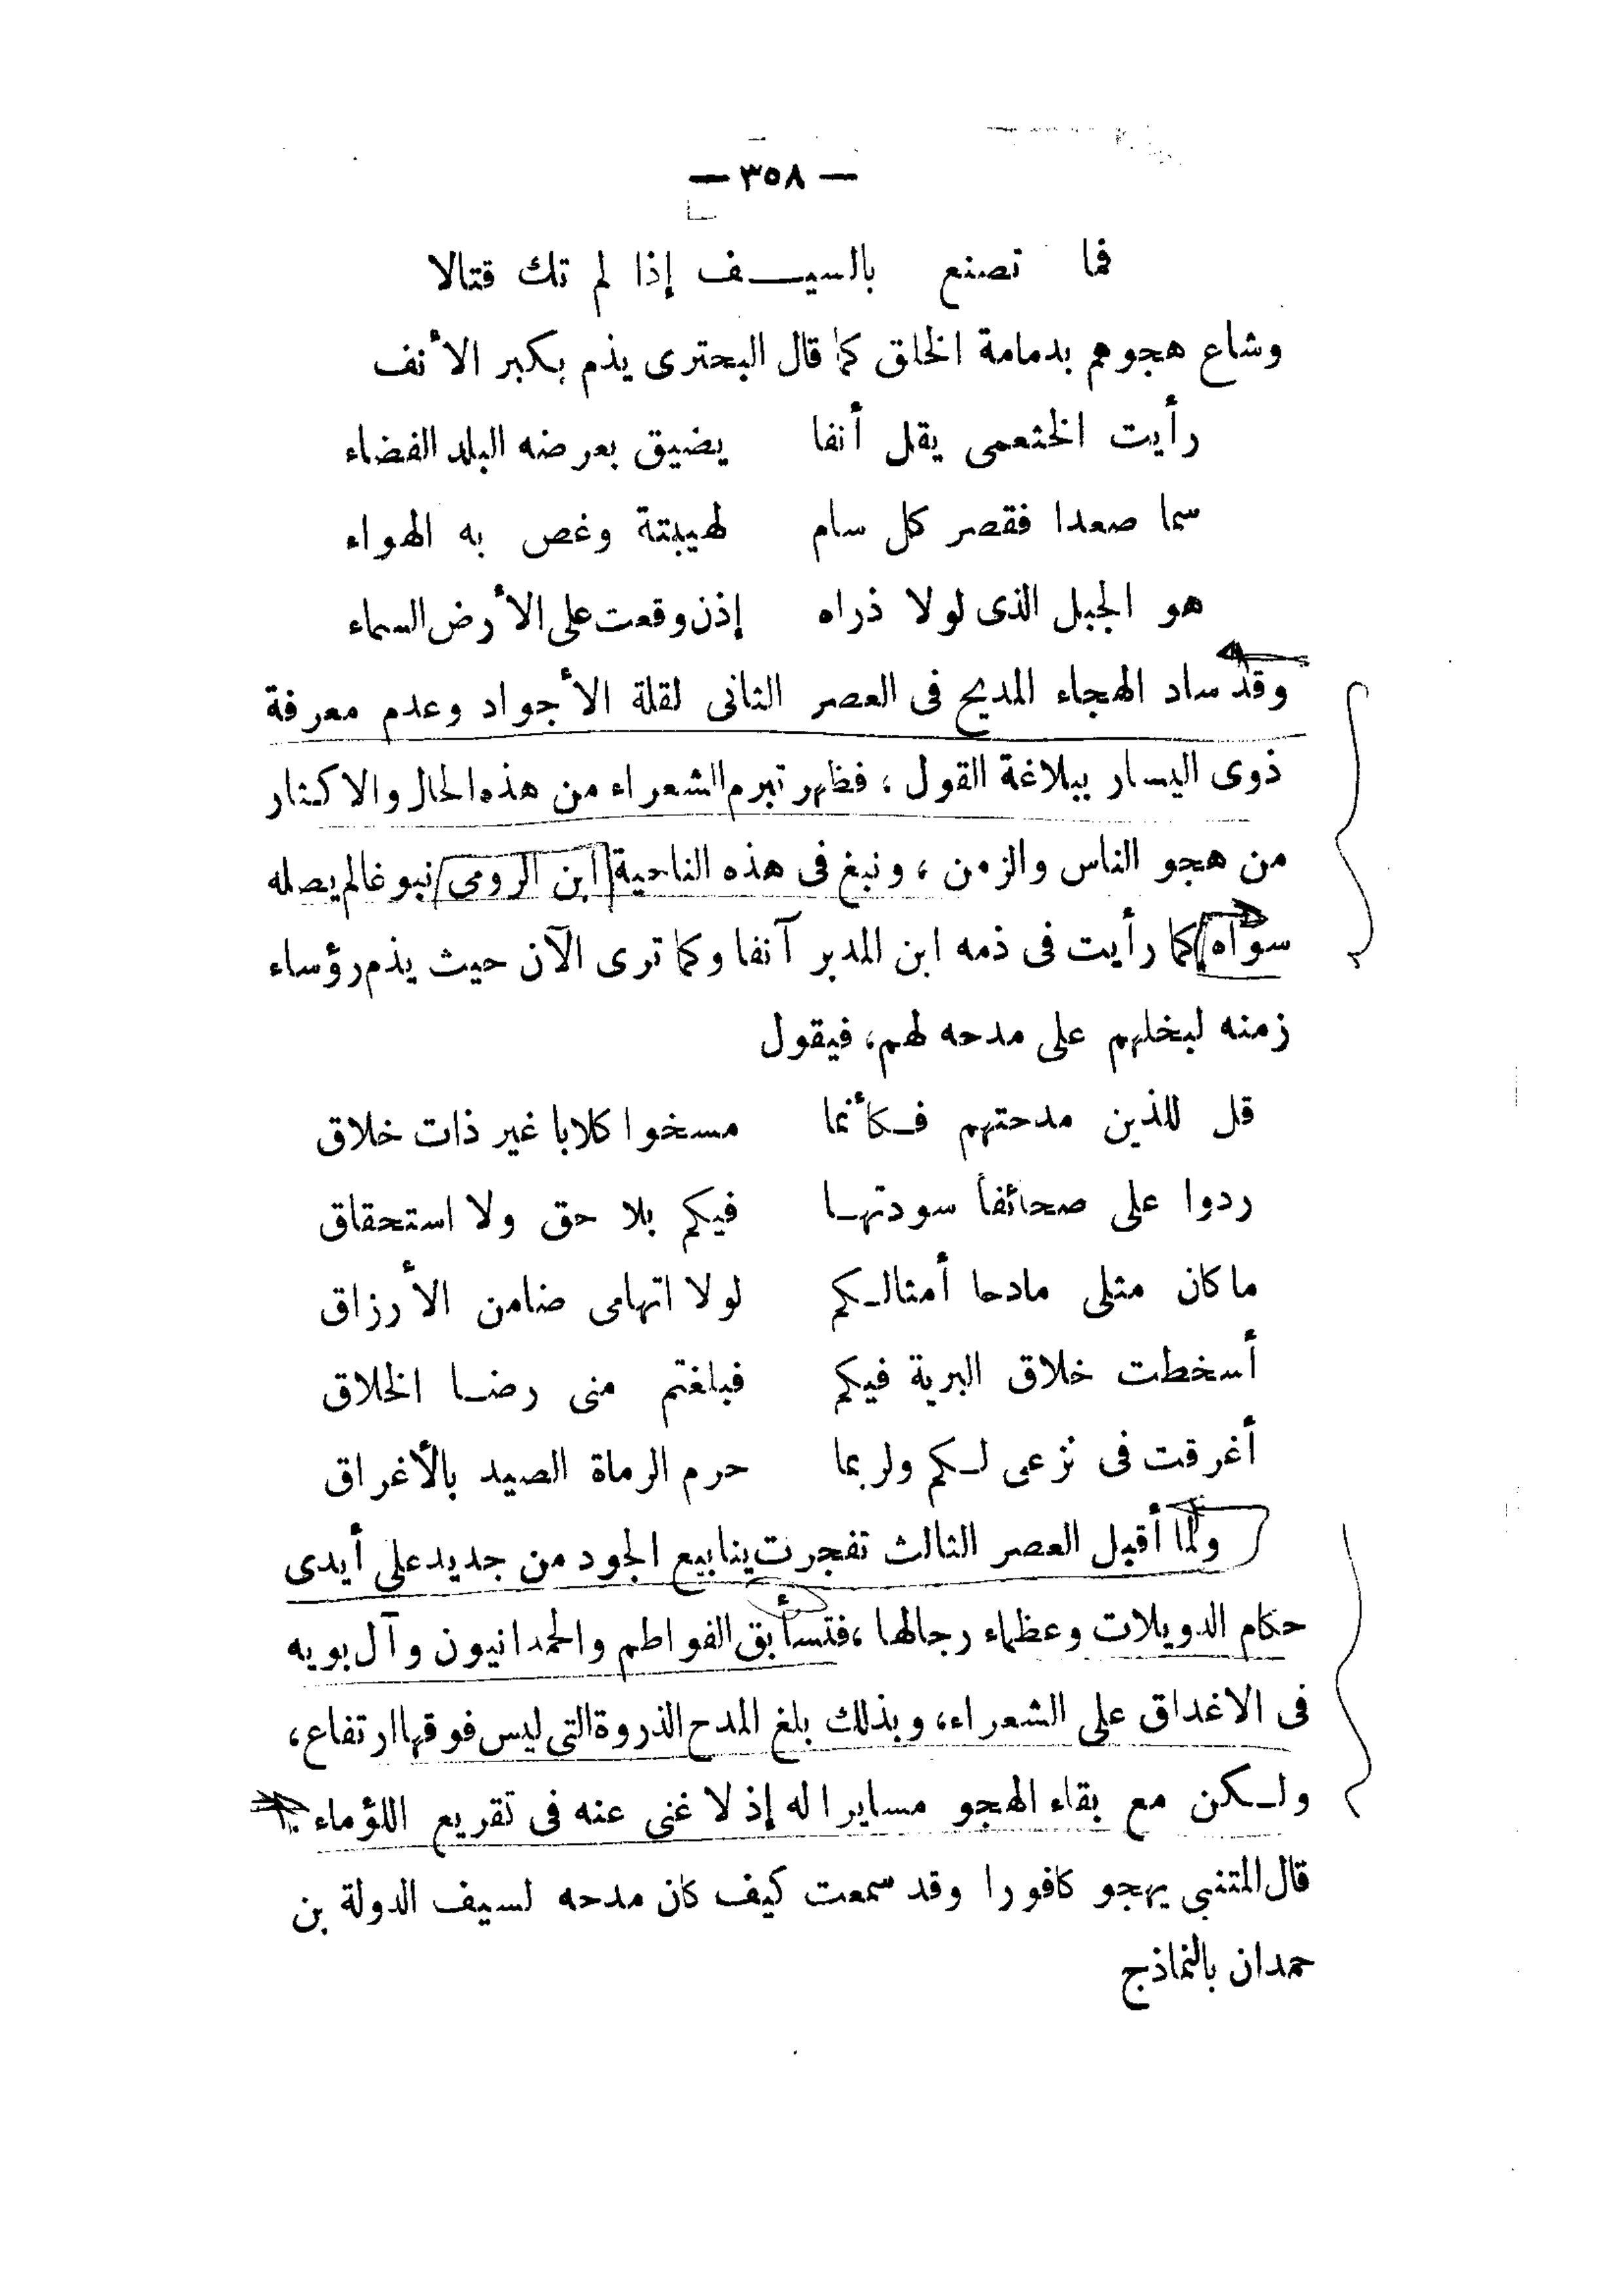 — ٣٥٨ —
فما تصنع بالسيـــف إذا لم تك قتالا
وشاع هجوهم بدمامة الخلق كما قال البحترى يذم بكبر الأنف
رأيت الخثعمى يقل أنفا يضيق بعرضه البلد الفضاء
سما صعدا فقصر كل سام لهيبتة وغص به الهواء
هو الجبل الذى لولا ذراه إذن وقعت على الأرض السماء
وقد ساد الهجاء المديح فى العصر الثانى لقلة الأجواد وعدم معرفة
ذوى اليسار ببلاغة القول ، فظهر تبرم الشعراء من هذه الحال والاكثار
من هجو الناس والزمن ، ونبغ فى هذه الناحية ابن الرومى نبوغا لم يصله
سواه كما رأيت فى ذمه ابن المدبر آنفا وكما ترى الآن حيث يذم رؤساء
زمنه لبخلهم على مدحه لهم، فيقول
قل للذين مدحتهم فـكأنما مسخوا كلابا غير ذات خلاق
ردوا على صحائفا سودتهـا فيكم بلا حق ولا استحقاق
ما كان مثلى مادحا أمثالـكم لولا اتهامى ضامن الأرزاق
أسخطت خلاق البرية فيكم فبلغتم منى رضـا الخلاق
أغرقت فى نزعى لـكم ولربما حرم الرماة الصيد بالأغراق
ولما أقبل العصر الثالث تفجرت ينابيع الجود من جديد على أيدى
حكام الدويلات وعظماء رجالها ، فتسابق الفواطم والحمدانيون وآل بويه
فى الاغداق على الشعراء، وبذلك بلغ المدح الذروة التى ليس فوقها ارتفاع،
ولـكن مع بقاء الهجو مسايرا له إذ لا غنى عنه فى تقريع اللؤماء .
قال المتنبى يهجو كافورا وقد سمعت كيف كان مدحه لسيف الدولة بن
حمدان بالنماذج